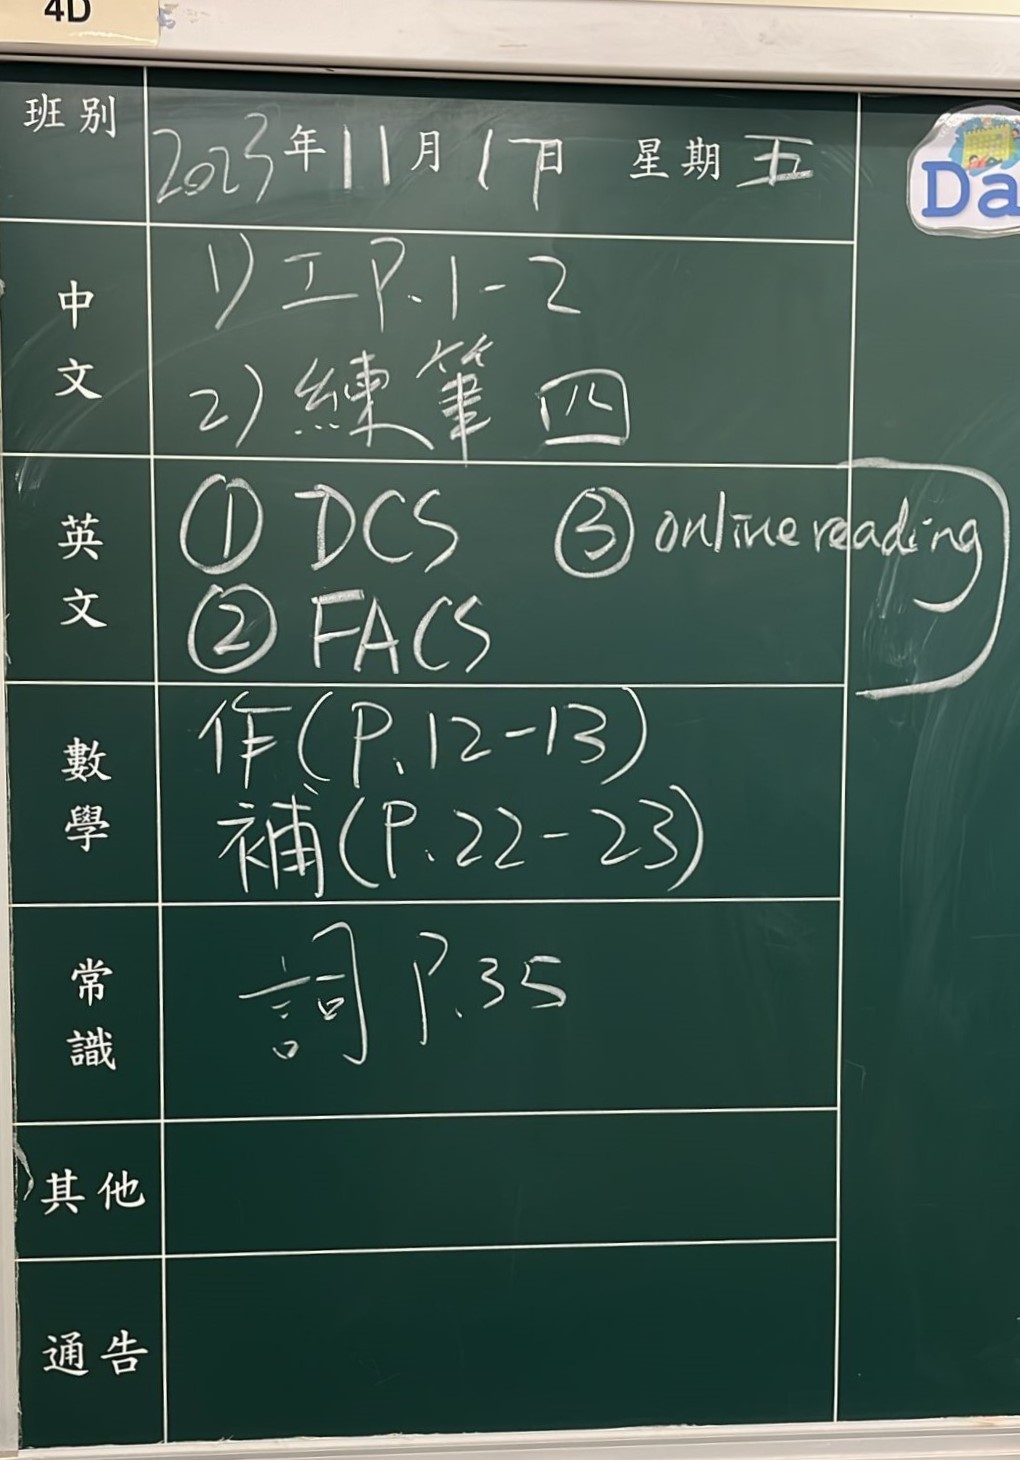 4D
班別
2023年11月17日 星期五
Da
中文
1) 工 P.1-2
2) 練筆四
英文
① DCS ③ online reading
② FACS
數學
作(P.12-13)
補(P.22-23)
常識
詞 P.35
其他
通告